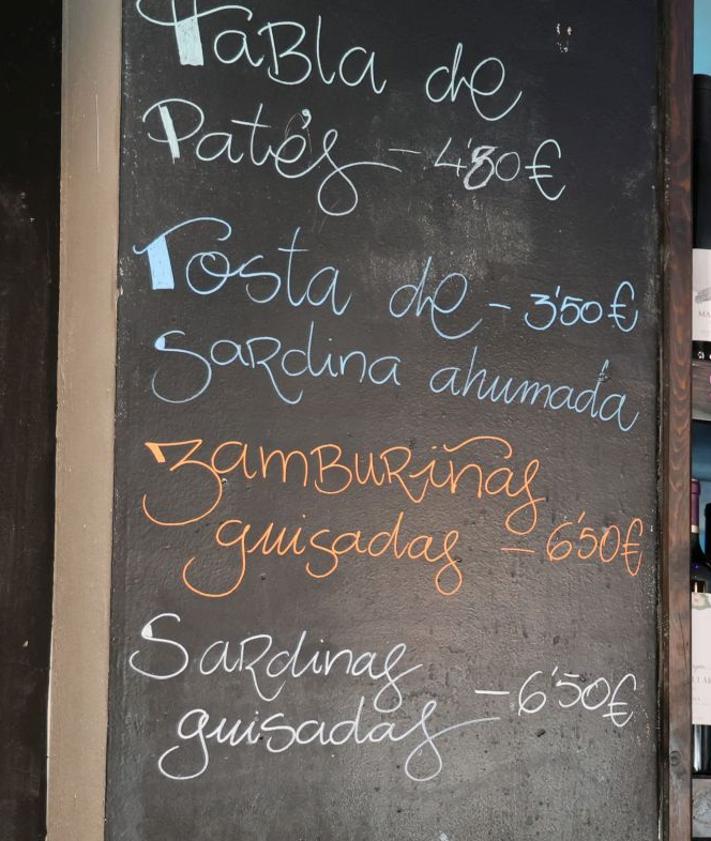 Tabla de
Patés - 4'80€
Tosta de - 3'50€
Sardina ahumada
Zamburiñas
guisadas - 6'50€
Sardinas
guisadas - 6'50€